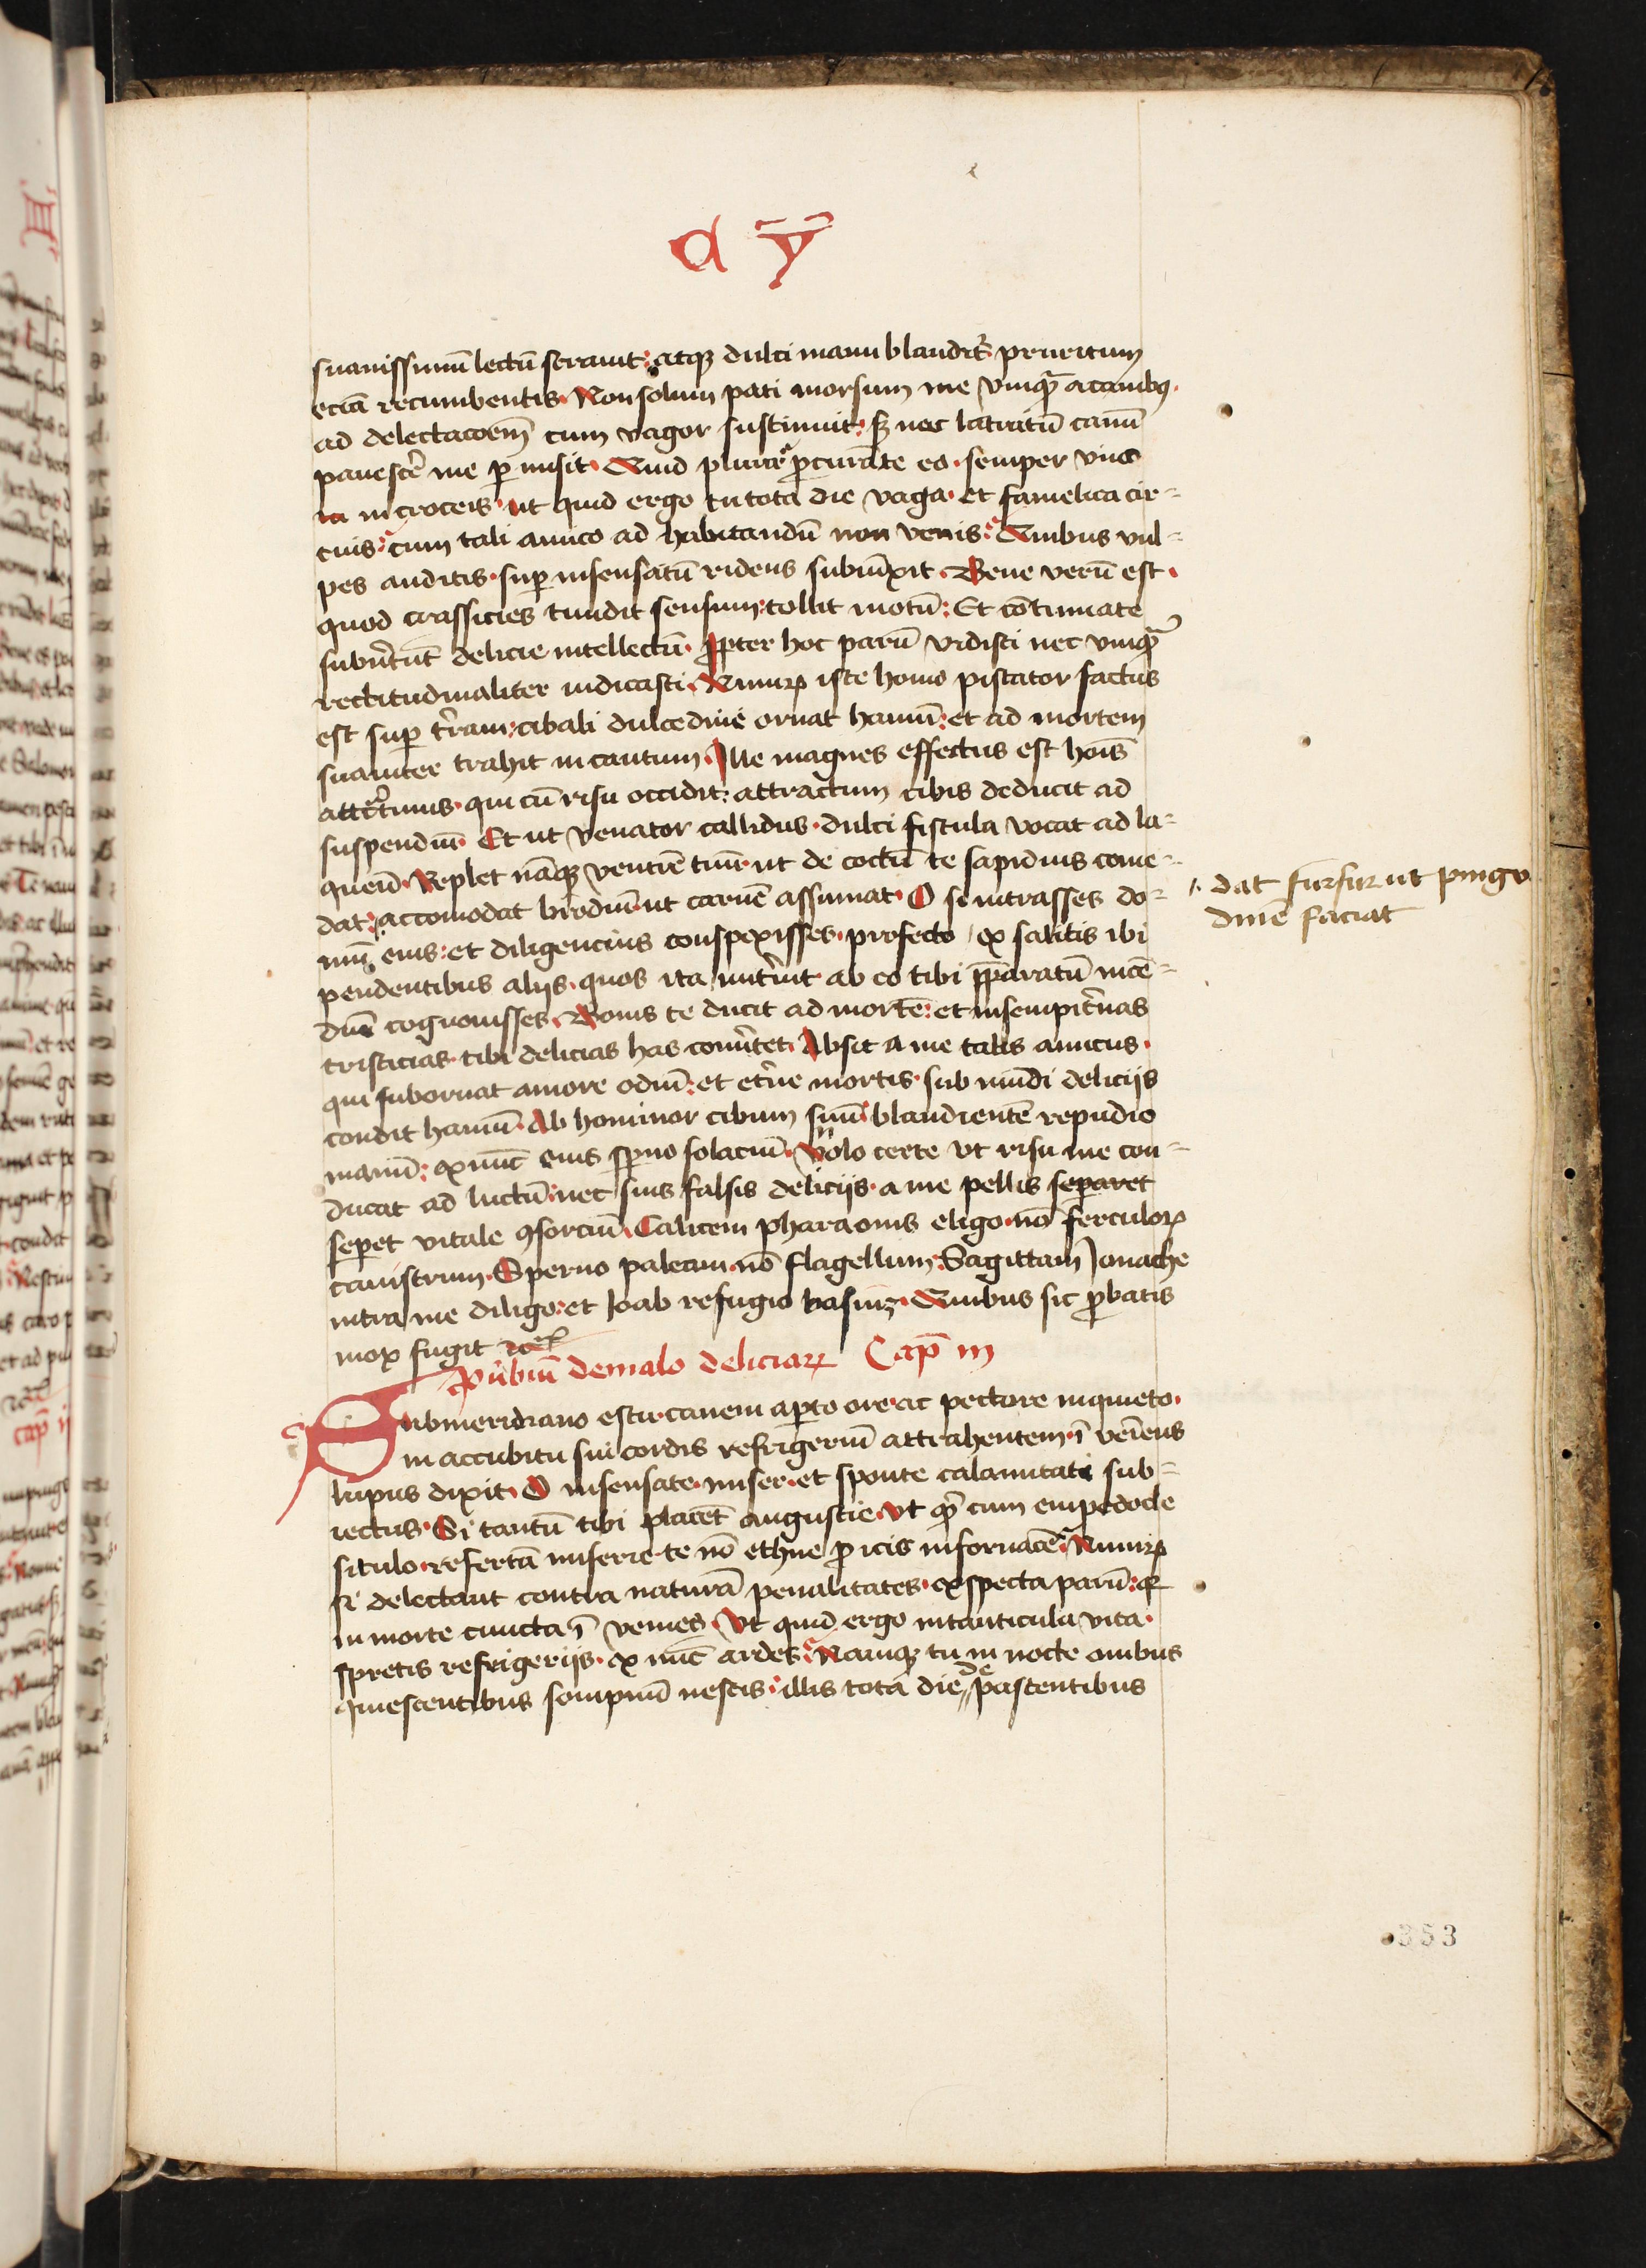 a ȳ
suauissimū lectū serauit: atqꝫ dulci manu blandit᷑ pruritum
eciā recumbentis. Non solum pati morsum me vnqᷓ a canibꝰ.
ad delectacoēm cum vagor sustinuit: sꝫ nec latratū canū
pauescē me ꝑmisit. Quid plura ꝓcurāte eo. semper viuo
in croceis. ut quid ergo tu tota die vaga. et famelica cir=
cuis: cum tali amico ad habitandū non venis: Quibus vul=
pes auditis. suꝑ insensatū ridens subiūxit. Bene verū est.
quod crassicies tundit sensum: tollit motū: Et cōtinuate
subu̓tūt delicie intellectū. Ꝓpter hoc parū vidisti nec vnqᷓ
rectitudinaliter iudicasti. Nimiꝝ iste homo piscator factus
est suꝑ t̓ram: cibali dulcedine ornat hamū: et ad mortem
suauiter trahit incautum. Ille magnes effectus est hoīs
qui cū risu occidit: attractum cibis deducit ad
suspendiū. Et ut venator callidus. dulci fistula vocat ad la=
queū. Replet nāqꝫ ventrē tuū. ut de coctū te sapidius come=
dat: accomodat brodiū. ut carnē assumat. O si intrasses do=
mū eius: et diligencius conspexisses. profecto ex salitis ibi
pendentibus aliis. quos ita nut̓uit. ab eo tibi p̄paratū incē=
diū cognouisses. Bonis te ducit ad mortē: et in sempit̓nas
tristicias. tibi delicias has conu̓tet. Absit a me talis amicus.
qui subornat amore odiū: et et̓ne mortis. sub mūdi deliciis
condit hamū. Ab hominor cibum suū: blandientē repudio
manū: ex nūc eius sꝑno solaciū. Nolo certe vt risu me con=
ducat ad luctū: nec suis falsis deliciis. a me pellis separet
seꝑet vitale ꝯsorciū. Calicem pharaonis eligo. nō ferculoꝝ
canistrum. Sperno paleam. nō flagellum: Sagittam Jonathe
intra me diligo: et Joab refugio basiuꝫ. Quibus sic ꝓbatis
mox fugit
dat furfur ut pingue
dinē faciat
Ꝓu̓biū de malo deliciaꝝ Cap̄ iii
Sub meridiano estu. canem aꝑto ore. ac pectore inquieto.
in accubitu sui cordis refrigeriū attrahentem. ī veīens
lupus dixit. O insensate. miser. et sponte calamitati sub=
iectus. Si tantū tibi placēt angustie. vt qr̄ cum empedocle
situlo. refertā miserie. te nō ethne ꝓicis in fornacē: Nimiꝝ
si delectant contra naturā penalitates. exspecta parū: qꝛ
in morte cuncta ī venies. Vt quid ergo in tanticula vita.
spretis refrigeriis. ex nūc ardes: Namqꝫ tu in nocte oībus
quiescentibus sompnū nescis: illis tota die de pascentibus
353